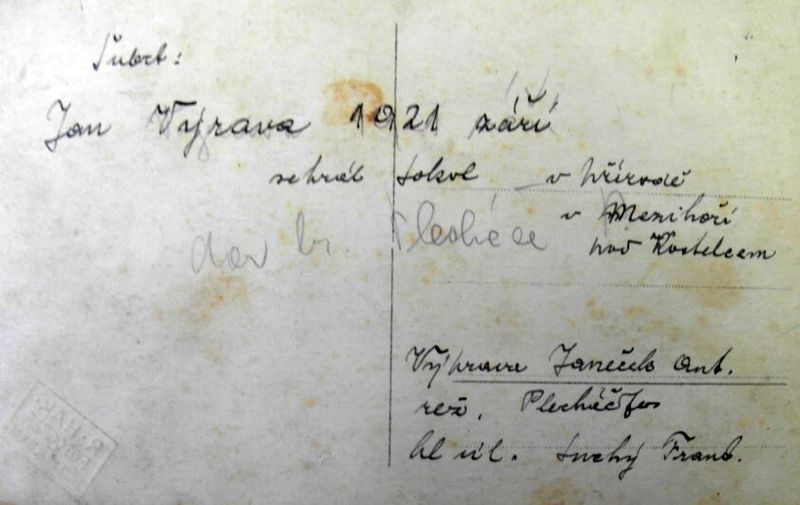 Šubrt:
Jan Výrava 1921 září
sehrál Sokol v přírodě
v Mezihoří
pod Kostelcem
dar br. Plecháče
Výprava Janeček Ant.
rež. Plecháč Jos
hl úl. Suchý Frant.